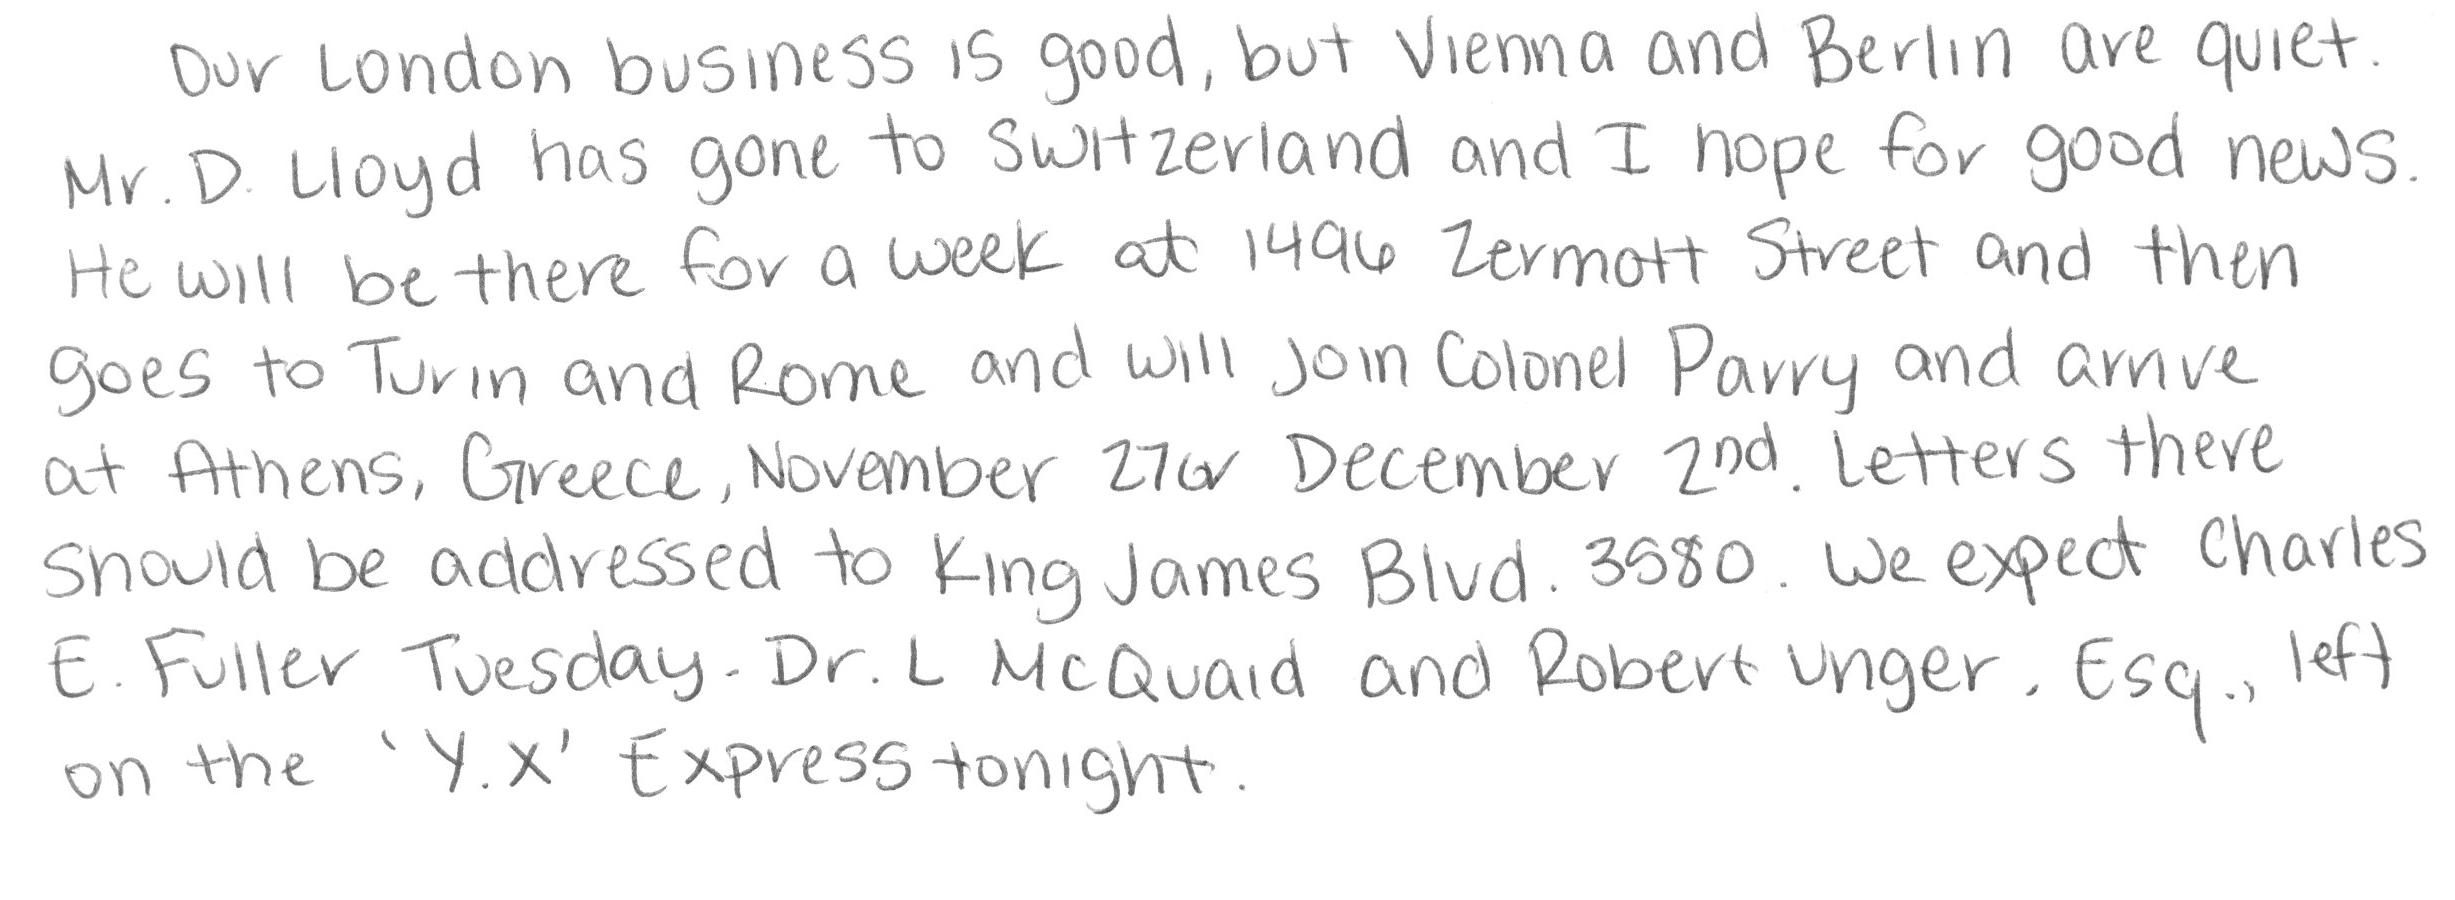 Our London business is good, but Vienna and Berlin are quiet.
Mr. D. Lloyd has gone to Switzerland and I hope for good news.
He will be there for a week at 1496 Zermott Street and then
goes to Turin and Rome and will join Colonel Parry and arrive
at Athens, Greece, November 27 or December 2nd. Letters there
should be addressed to King James Blvd. 3580. We expect Charles
E. Fuller Tuesday. Dr. L McQuaid and Robert Unger, Esq., left
on the 'Y.X' Express tonight.